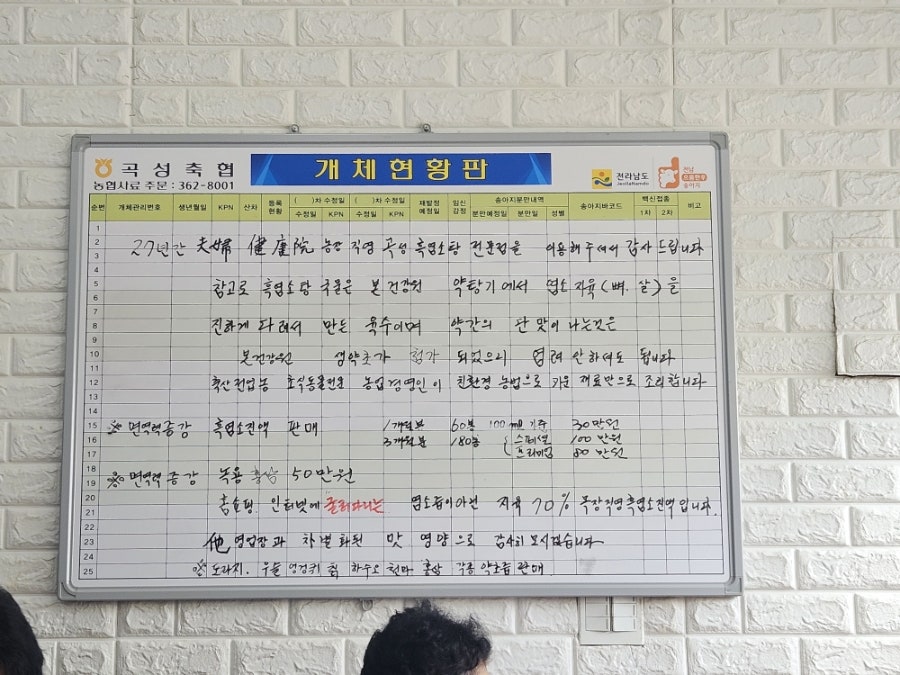 곡성축협
농협사료 주문 : 362-8001
개체현황판
전라남도
JeollaNamdo
전남
송아지
순번 개체관리번호 생년월일 KPN 산차 등록현황 ( )차 수정일 수정일 KPN ( )차 수정일 수정일 KPN 재발정예정일 임신감정 송아지분만내역 분만예정일 분만일 성별 송아지바코드 백신접종 1차 2차 비고
1
2
3
4
5
6
7
8
9
10
11
12
13
14
15
16
17
18
19
20
21
22
23
24
25
27년간 夫婦 健康院 농장 직영 곡성 흑염소탕 전문점을 이용해주셔서 감사 드립니다
참고로 흑염소탕 국물은 본 건강원 약탕기에서 염소 지육(뼈, 살)을
진하게 다려서 만든 육수이며 약간의 단 맛이 나는것은
본건강원 생약초가 첨가 되었으니 염려 안하셔도 됩니다
축산전업농 농업경영인이 친환경 농법으로 키운 재료만으로 조리합니다
※ 면역력증강 흑염소진액 판매 1개월분 60봉 100ml 기준 30만원
3개월분 180봉 스페셜 100만원
프리미엄 80만원
※ 면역력 증강 녹용 홍삼 50만원
홈쇼핑 인터넷에 염소탕이아닌 지육 70% 목장직영흑염소진액입니다.
他 영업장과 차별화된 맛 영양으로 감사히 모시겠습니다
※ 도라지, 우슬 엉겅퀴 칡 하수오 천마 홍삼 각종 약초즙 판매